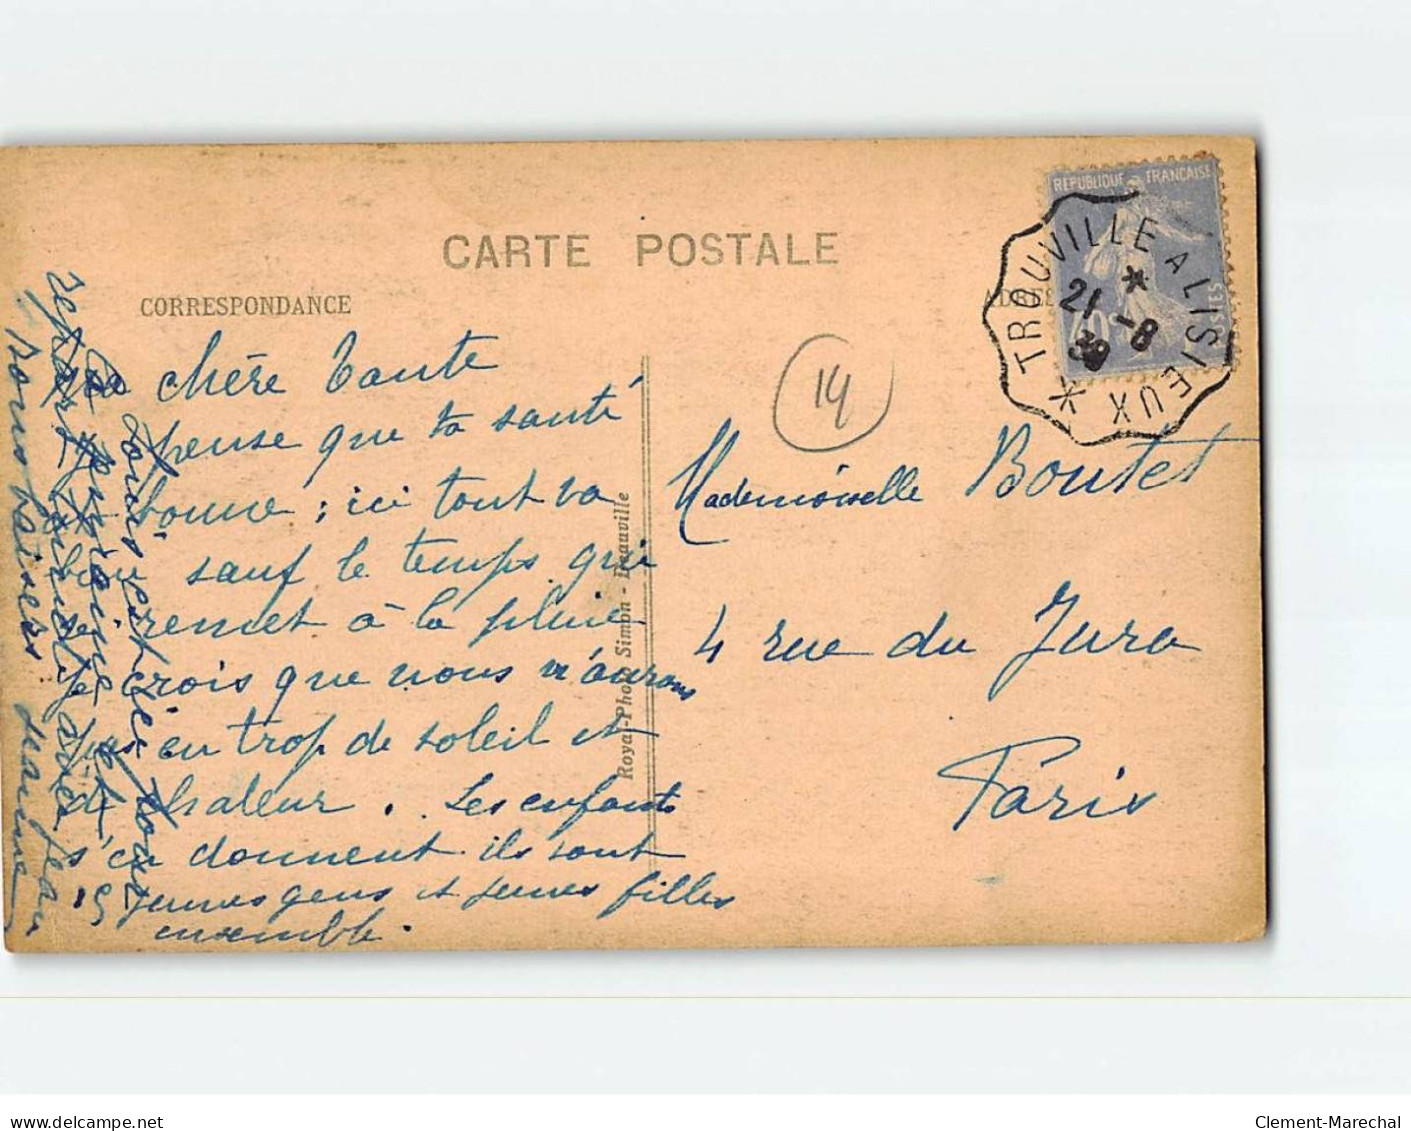 CARTE POSTALE
CORRESPONDANCE
RÉPUBLIQUE FRANÇAISE
40c
TROUVILLE A LISIEUX
21-8
39
14
chère tante
pense que ta santé
bonne ; ici tout va
bien sauf le temps qui
se remet à la pluie
crois que nous n'aurons
pas eu trop de soleil et
de chaleur. Les enfants
s'en donnent ils sont
15 jeunes gens et jeunes filles
ensemble.
Louis est
bons baisers
Mademoiselle Boutet
4 rue du Jura
Paris
Royal-Photo Simon - Deauville
delcampe.net
Clement-Marechal